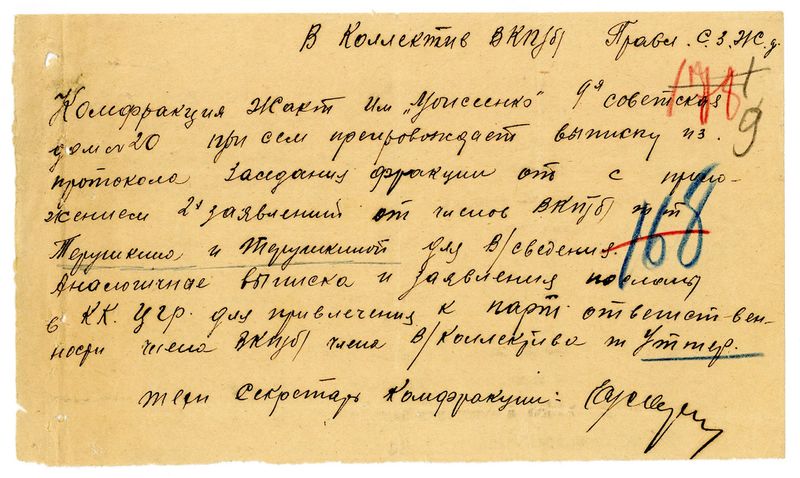 В Коллектив ВКП/б/ Правл. С.З.Ж.д.
178
9
Комфракция Жакт им „Моисеенко" 9я советская
дом №20 при сем препровождает выписку из
протокола заседания фракции от с прило-
жением 2х заявлений от членов ВКП/б/ т т
168
Терушкина и Терушкиной для В/сведения.
Аналогичные выписка и заявления посланы
в КК. ЦГР. для привлечения к парт. ответствен-
ности члена ВКП/б/ члена В/Коллектива т Уттер.
Секретарь Комфракции: